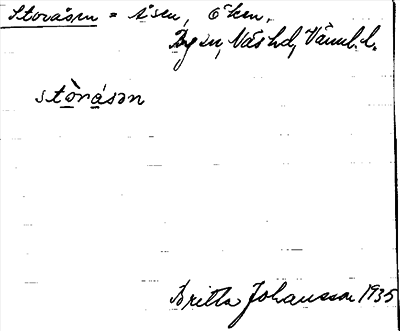 Storåsen = Åsen, Öken,
By sn, Näs hd, Värml. l.
stòrásən
Britta Johansson 1935